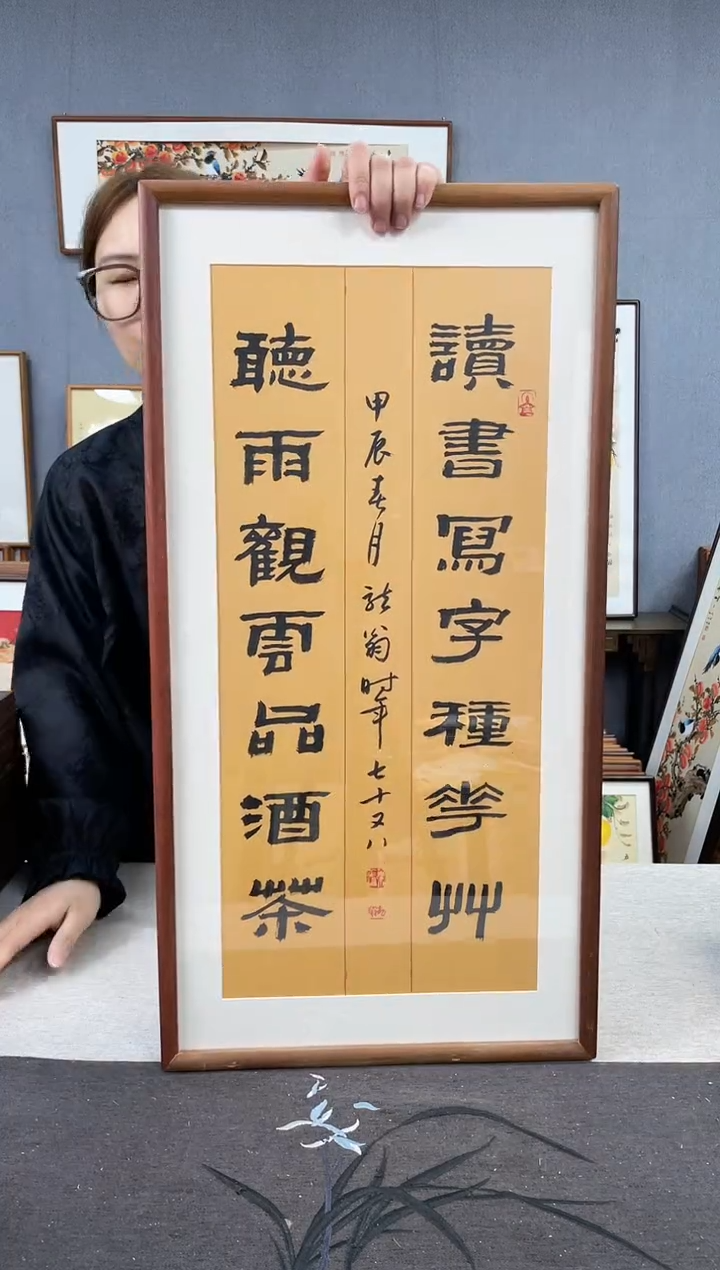 讀書寫字種花艸
甲辰春月龍翁時年七十又八
聽雨觀雲品酒茶